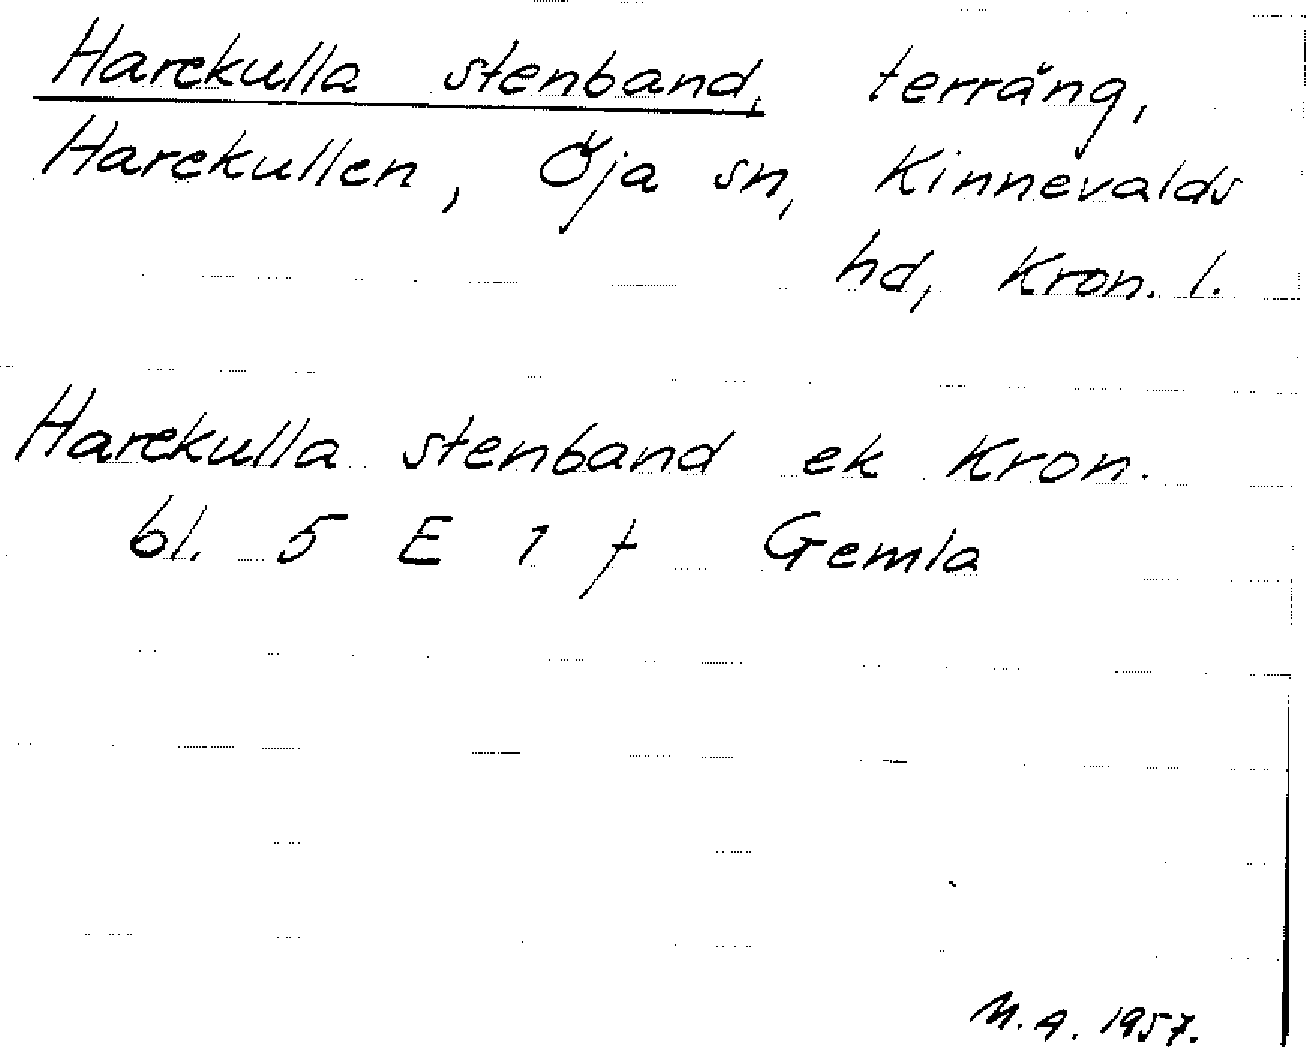 Harekulla stenband, terräng,
Harekullen, Öja sn, Kinnevalds
hd, Kron. l.
Harekulla stenband ek Kron.
bl. 5 E 1 f Gemla
M. A. 1957.